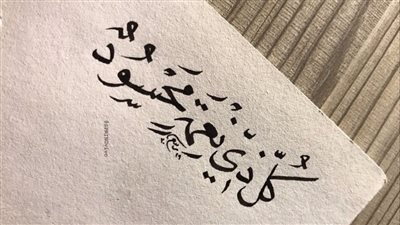 كُلُّ ذِي نِعْمَةٍ مَحْسُودٌ